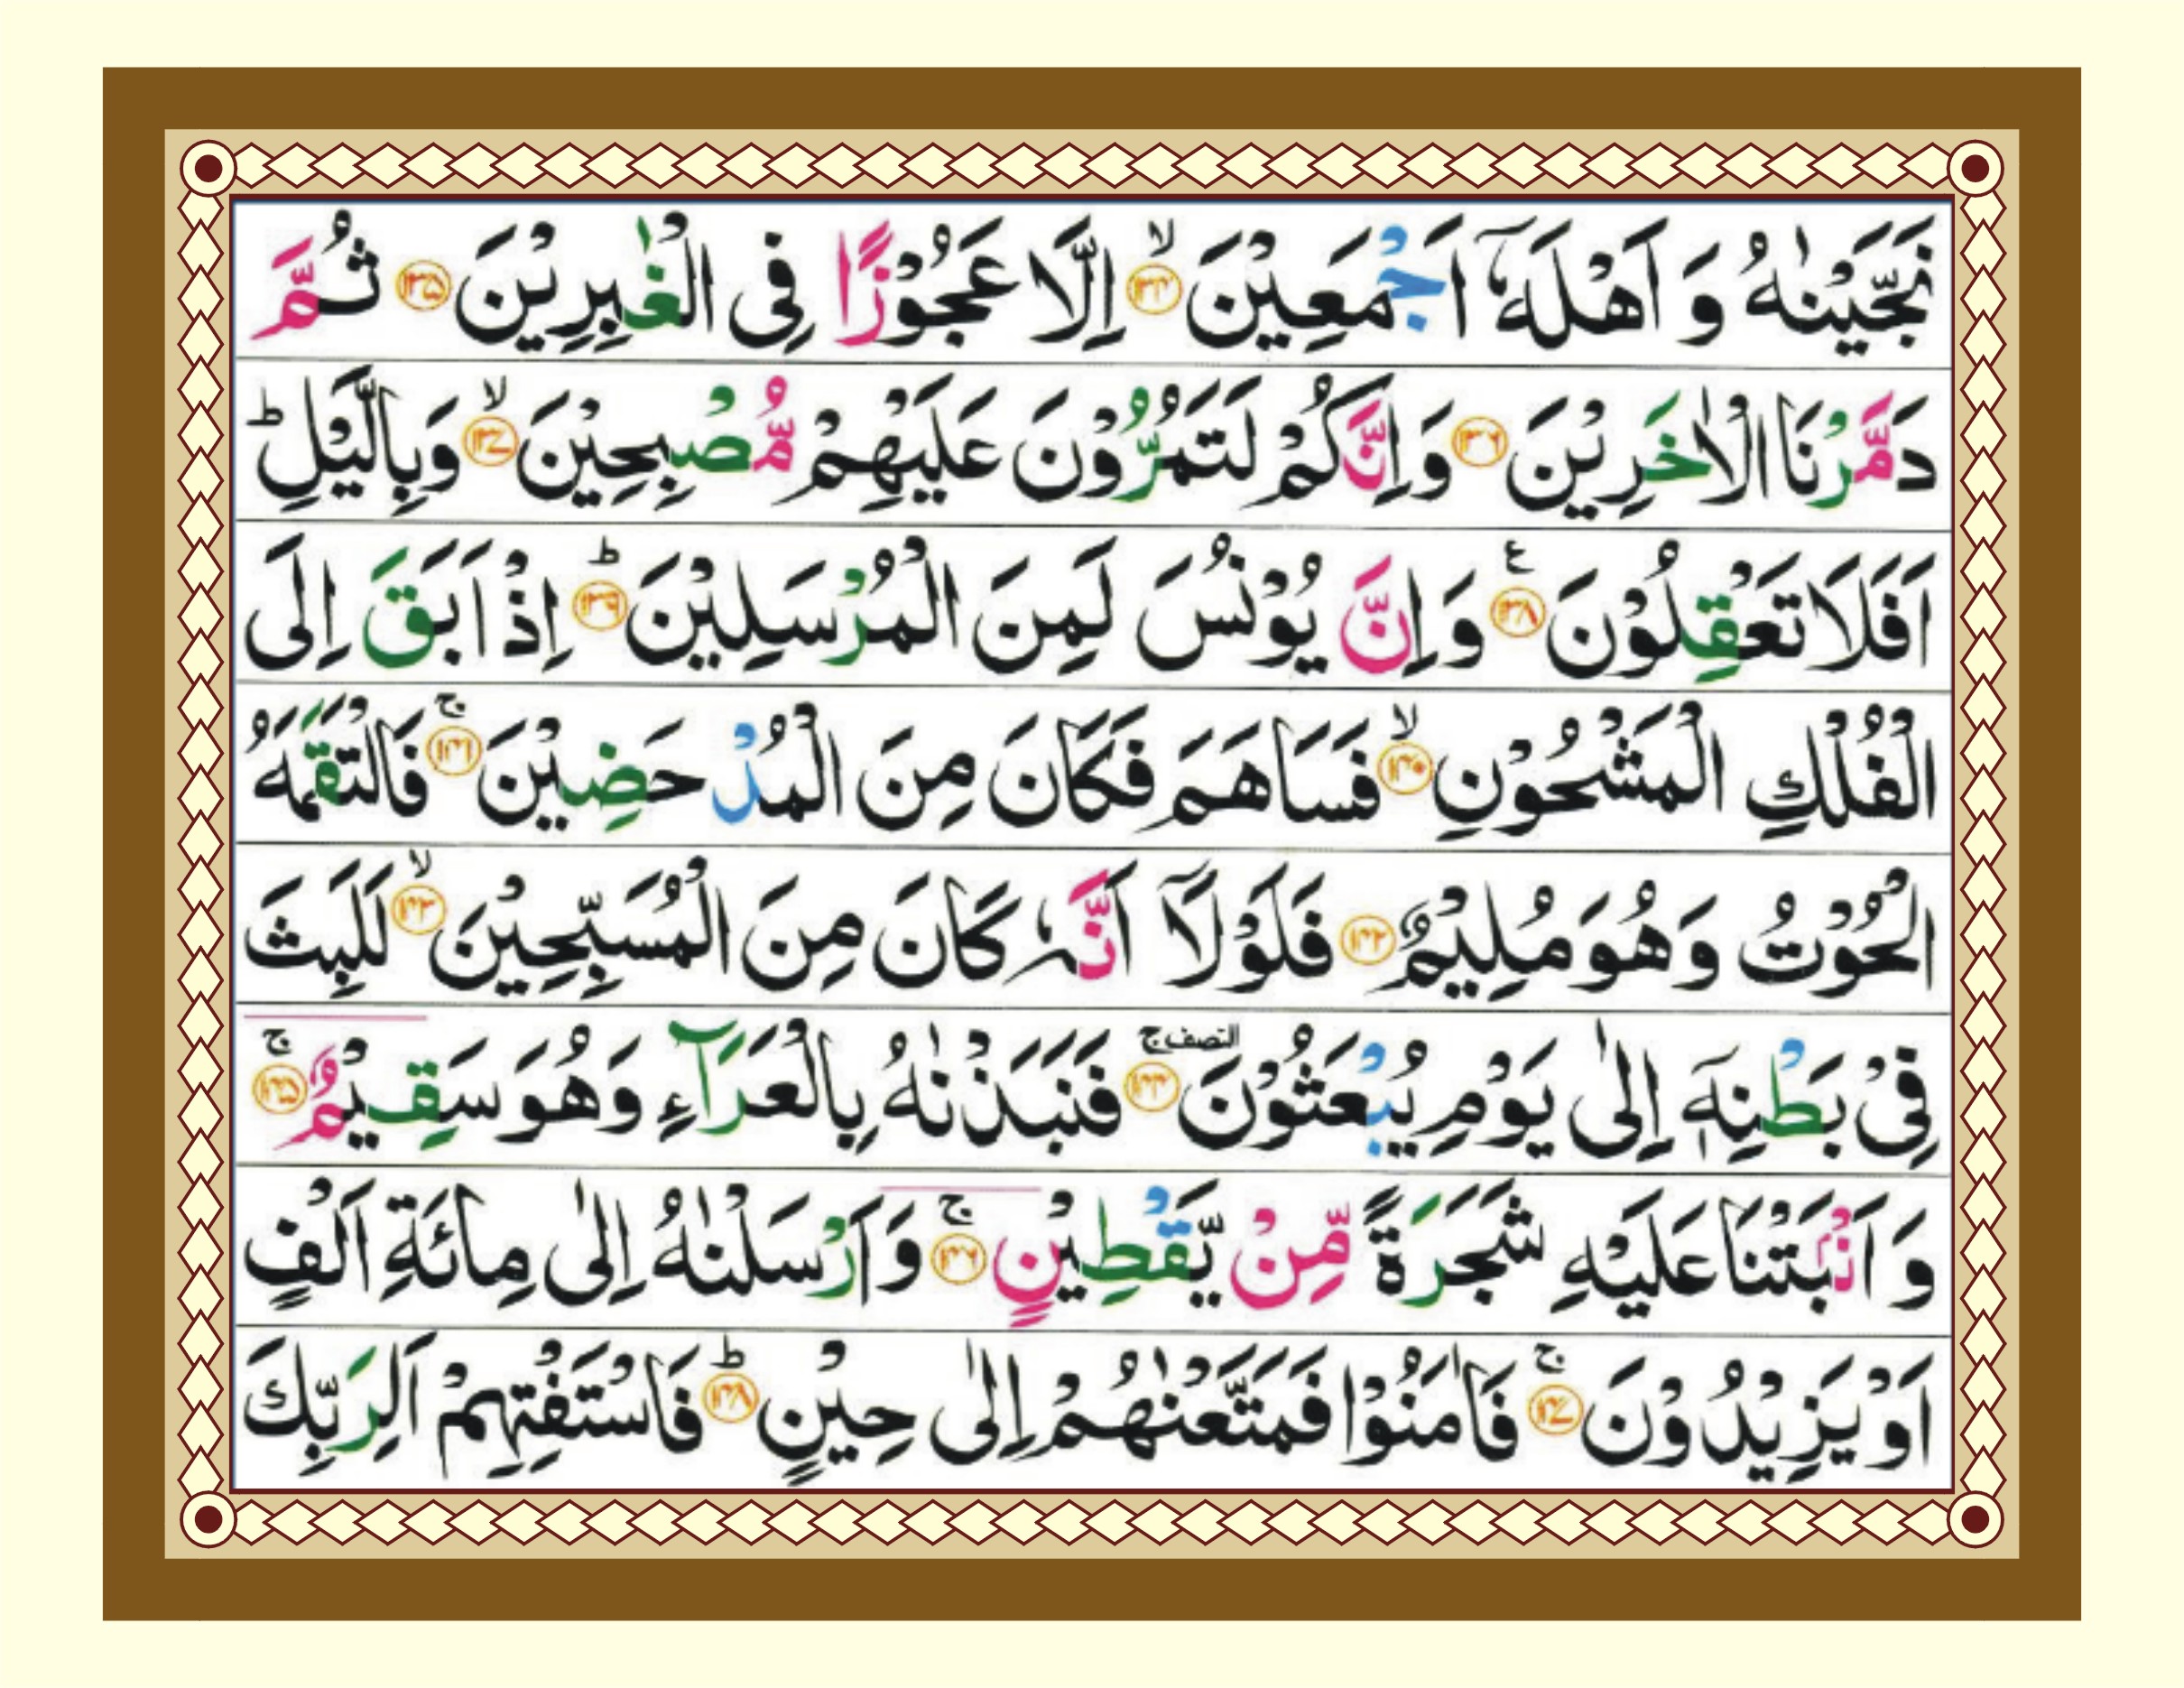 نَجَّيْنٰهُ وَ اَهْلَهٗۤ اَجْمَعِيْنَ ۙ﴿۱۳۴﴾ اِلَّا عَجُوْزًا فِى الْغٰبِرِيْنَ ﴿۱۳۵﴾ ثُمَّ
دَمَّرْنَا الْاٰخَرِيْنَ ﴿۱۳۶﴾ وَ اِنَّكُمْ لَتَمُرُّوْنَ عَلَيْهِمْ مُّصْبِحِيْنَ ۙ﴿۱۳۷﴾ وَبِالَّيْلِ ؕ
اَفَلَا تَعْقِلُوْنَ ﴿۱۳۸﴾ ع وَ اِنَّ يُوْنُسَ لَمِنَ الْمُرْسَلِيْنَ ؕ﴿۱۳۹﴾ اِذْ اَبَقَ اِلَى
الْفُلْكِ الْمَشْحُوْنِ ۙ﴿۱۴۰﴾ فَسَاهَمَ فَكَانَ مِنَ الْمُدْحَضِيْنَ ۚ﴿۱۴۱﴾ فَالْتَقَمَهُ
الْحُوْتُ وَهُوَ مُلِيْمٌ ﴿۱۴۲﴾ فَلَوْلَاۤ اَنَّهٗ كَانَ مِنَ الْمُسَبِّحِيْنَ ۙ﴿۱۴۳﴾ لَلَبِثَ
فِىْ بَطْنِهٖۤ اِلٰى يَوْمِ يُبْعَثُوْنَ النصف ۚ﴿۱۴۴﴾ فَنَبَذْنٰهُ بِالْعَرَآءِ وَهُوَ سَقِيْمٌ ۚ﴿۱۴۵﴾
وَ اَنْۢبَتْنَا عَلَيْهِ شَجَرَةً مِّنْ يَّقْطِيْنٍ ۚ﴿۱۴۶﴾ وَ اَرْسَلْنٰهُ اِلٰى مِائَةِ اَلْفٍ
اَوْ يَزِيْدُوْنَ ۚ﴿۱۴۷﴾ فَاٰمَنُوْا فَمَتَّعْنٰهُمْ اِلٰى حِيْنٍ ؕ﴿۱۴۸﴾ فَاسْتَفْتِهِمْ اَلِرَبِّكَ